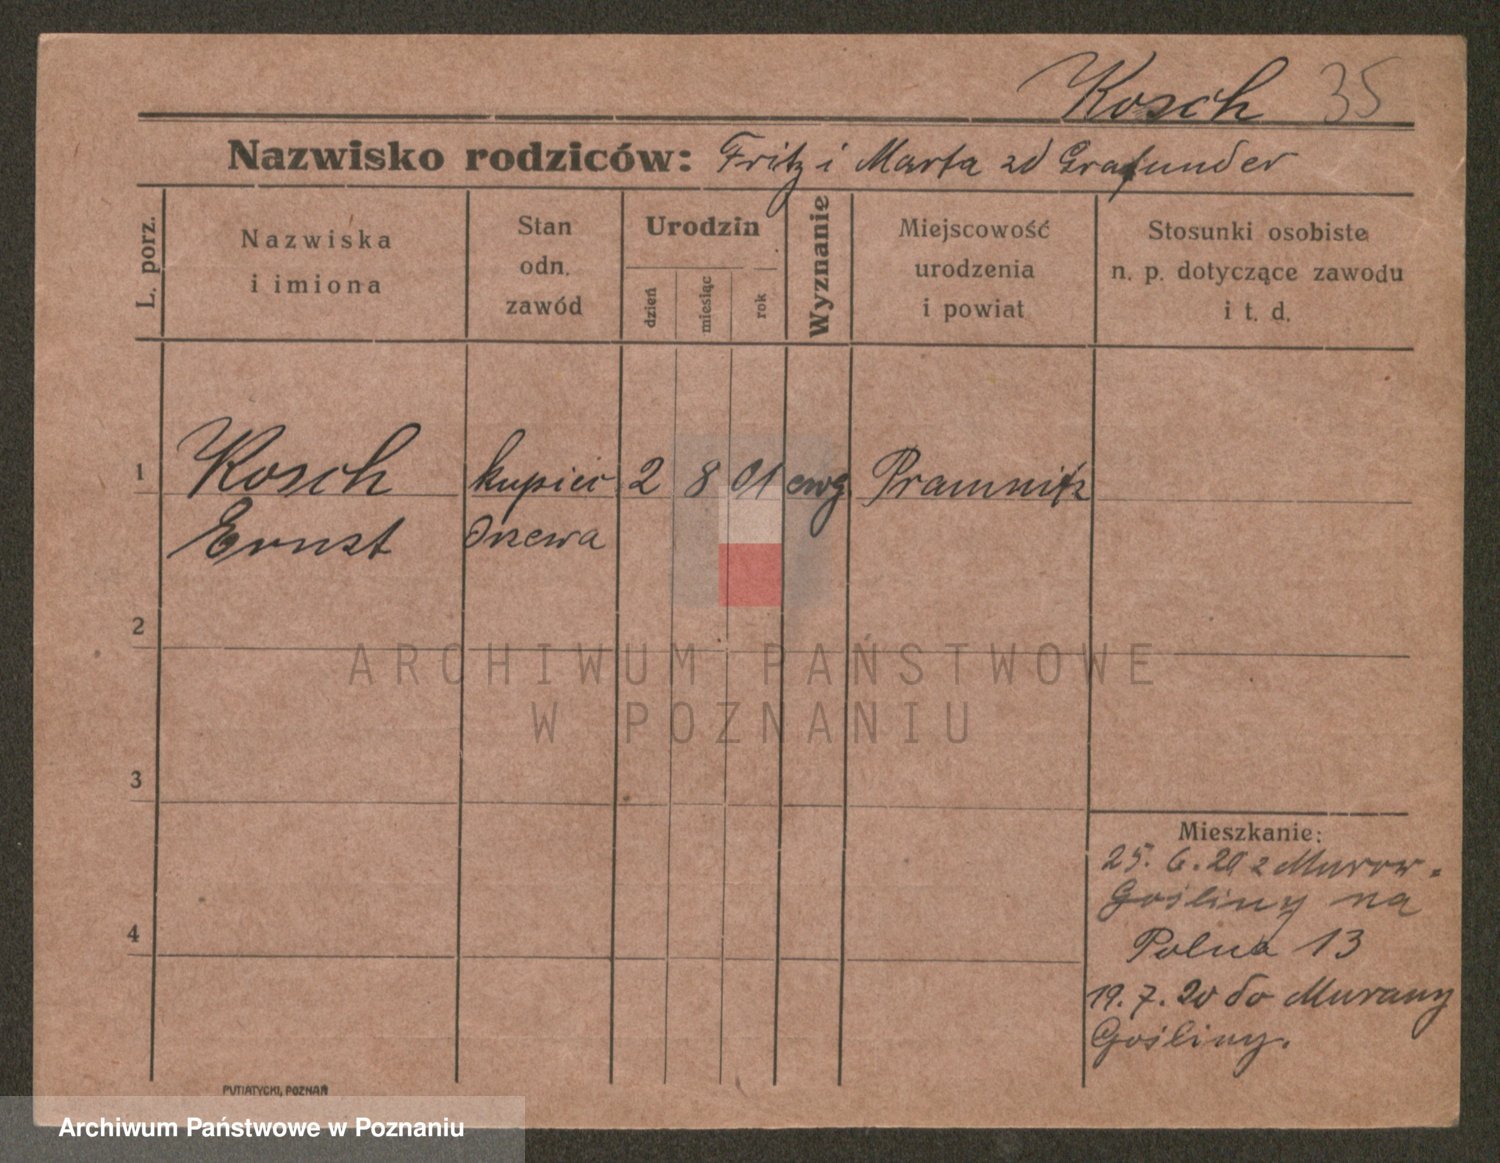 Kosch 35
Nazwisko rodziców: Fritz i Marta zd Grafunder
L. porz.
Nazwiska
i imiona
Stan
odn.
zawód
Urodzin
dzień
miesiąc
rok
Wyznanie
Miejscowość
urodzenia
i powiat
Stosunki osobiste
n. p. dotyczące zawodu
i t. d.
1 Kosch kupiec 2 8 01 ewg Pramnitz
Ernst drzewa
2
ARCHIWUM PAŃSTWOWE
W POZNANIU
3
Mieszkanie:
25. 6. 20 z Murow.
Gośliny na
4
Polna 13
19. 7. 20 do Murowany
Gośliny.
PUTIATYCKI, POZNAŃ
Archiwum Państwowe w Poznaniu